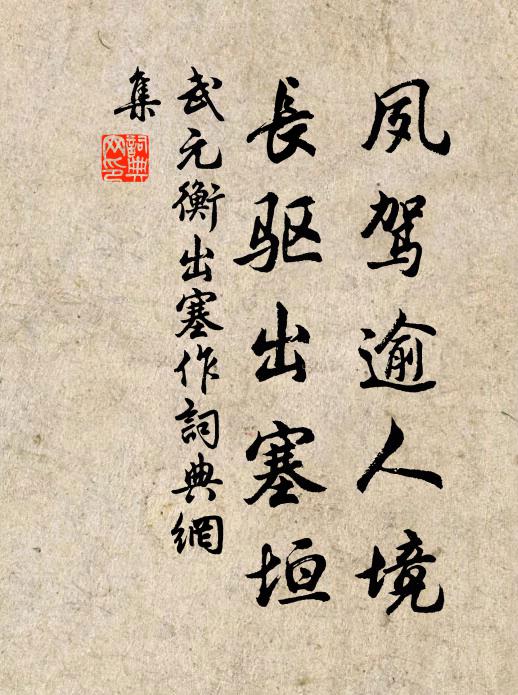 夙驾逾人境
長驱出塞垣
武元衡出塞作詞典網
集
詞典
网印